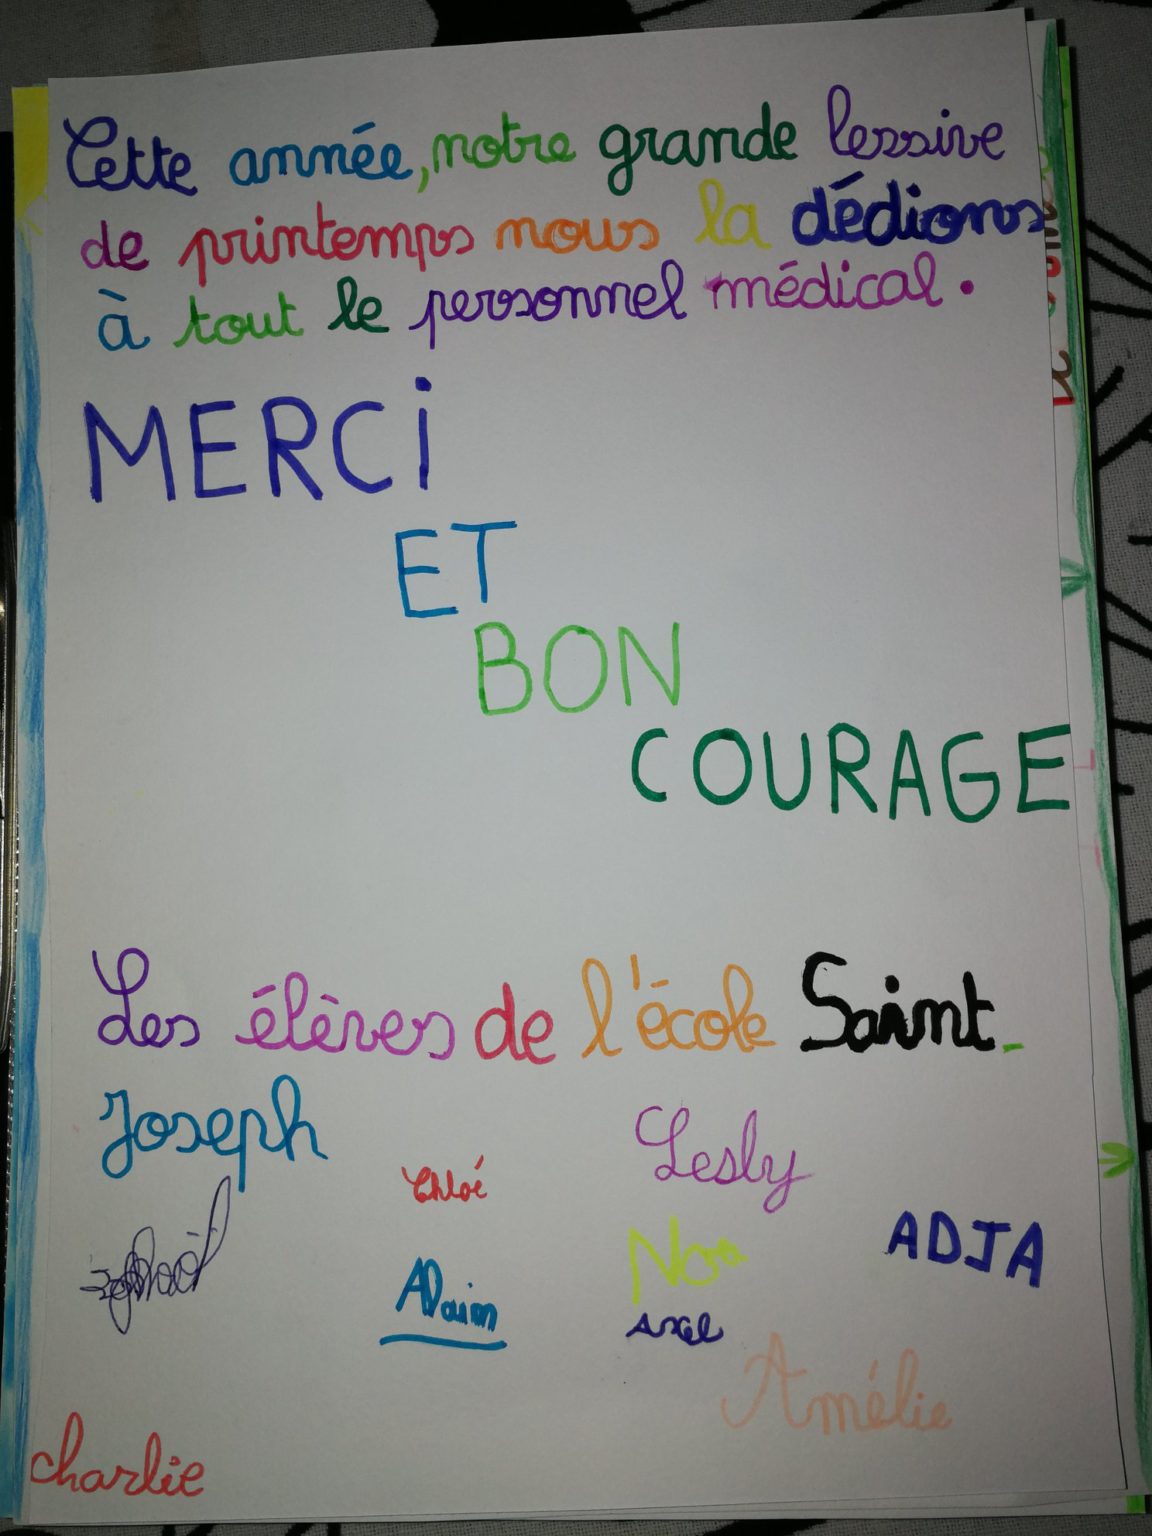 Cette année, notre grande lessive
de printemps nous la dédions
à tout le personnel médical.
MERCi
ET
BON
COURAGE
Les élèves de l'école Saint-
Joseph
Lesly
Chloé
ADJA
Noa
Axel
Amélie
charlie